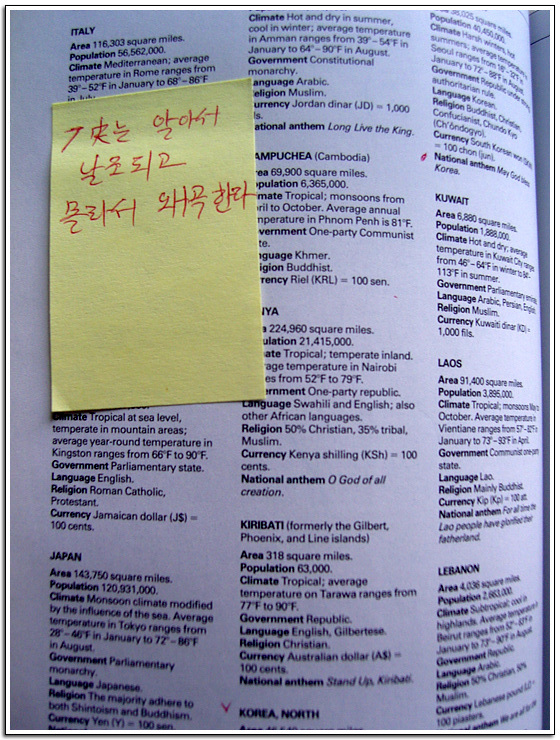 史는 알아서
날조되고
몰라서 왜곡한다
ITALY
Area 116,303 square miles.
Population 56,562,000.
Climate Mediterranean; average
temperature in Rome ranges from
39°–52°F in January to 68°–86°F
in July.
Climate Tropical at sea level,
temperate in mountain areas;
average year-round temperature in
Kingston ranges from 66°F to 90°F.
Government Parliamentary state.
Language English.
Religion Roman Catholic,
Protestant.
Currency Jamaican dollar (J$) =
100 cents.
JAPAN
Area 143,750 square miles.
Population 120,931,000.
Climate Monsoon climate modified
by the influence of the sea. Average
temperature in Tokyo ranges from
28°–46°F in January to 72°–86°F
in August.
Government Parliamentary
monarchy.
Language Japanese.
Religion The majority adhere to
both Shintoism and Buddhism.
Currency Yen (Y) = 100 sen.
Climate Hot and dry in summer,
cool in winter; average temperature
in Amman ranges from 39°–54°F in
January to 64°–90°F in August.
Government Constitutional
monarchy.
Language Arabic.
Religion Muslim.
Currency Jordan dinar (JD) = 1,000
ls.
National anthem Long Live the King.
AMPUCHEA (Cambodia)
ea 69,900 square miles.
opulation 6,365,000.
mate Tropical; monsoons from
ril to October. Average annual
mperature in Phnom Penh is 81°F.
vernment One-party Communist
te.
nguage Khmer.
ligion Buddhist.
rrency Riel (KRL) = 100 sen.
NYA
a 224,960 square miles.
ulation 21,415,000.
ate Tropical; temperate inland.
rage temperature in Nairobi
es from 52°F to 79°F.
ernment One-party republic.
Language Swahili and English; also
other African languages.
Religion 50% Christian, 35% tribal,
Muslim.
Currency Kenya shilling (KSh) = 100
cents.
National anthem O God of all
creation.
KIRIBATI (formerly the Gilbert,
Phoenix, and Line islands)
Area 318 square miles.
Population 63,000.
Climate Tropical; average
temperature on Tarawa ranges from
77°F to 90°F.
Government Republic.
Language English, Gilbertese.
Religion Christian.
Currency Australian dollar (A$) =
100 cents.
National anthem Stand Up, Kiribati.
KOREA, NORTH
square miles.
Population 40,450,000.
Climate Harsh winters, hot
summers; average temperature in
Seoul ranges from
January to 72°–88°F in August.
Government Republic under
authoritarian rule.
Language Korean.
Religion Buddhist, Christian,
Confucianist, Chundo Kyo
(Ch'ŏndogyo).
Currency South Korean won
= 100 chon (jun).
National anthem May God bless
Korea.
KUWAIT
Area 6,880 square miles.
Population 1,888,000.
Climate Hot and dry; average
temperature in Kuwait City ranges
from 46°–64°F in winter to 84°–
113°F in summer.
Government Parliamentary
Language Arabic, Persian, English.
Religion Muslim.
Currency Kuwaiti dinar (KD) =
1,000 fils.
LAOS
Area 91,400 square miles.
Population 3,895,000.
Climate Tropical; monsoons May to
October. Average temperature in
Vientiane ranges from 57°–82°F in
January to 73°–93°F in April.
Government Communist one-party
state.
Language Lao.
Religion Mainly Buddhist.
Currency Kip (Kp) = 100 att.
National anthem For all time the
Lao people have glorified their
fatherland.
LEBANON
Area 4,036 square miles.
Population 2,663,000.
Climate Subtropical; cool in
highlands. Average temperature in
Beirut ranges from 52°–63°F in
January to 73°–90°F in August.
Government Republic.
Language Arabic.
Religion 50% Christian, 50%
Muslim.
Currency Lebanese pound
100 piasters.
National anthem We are all for the